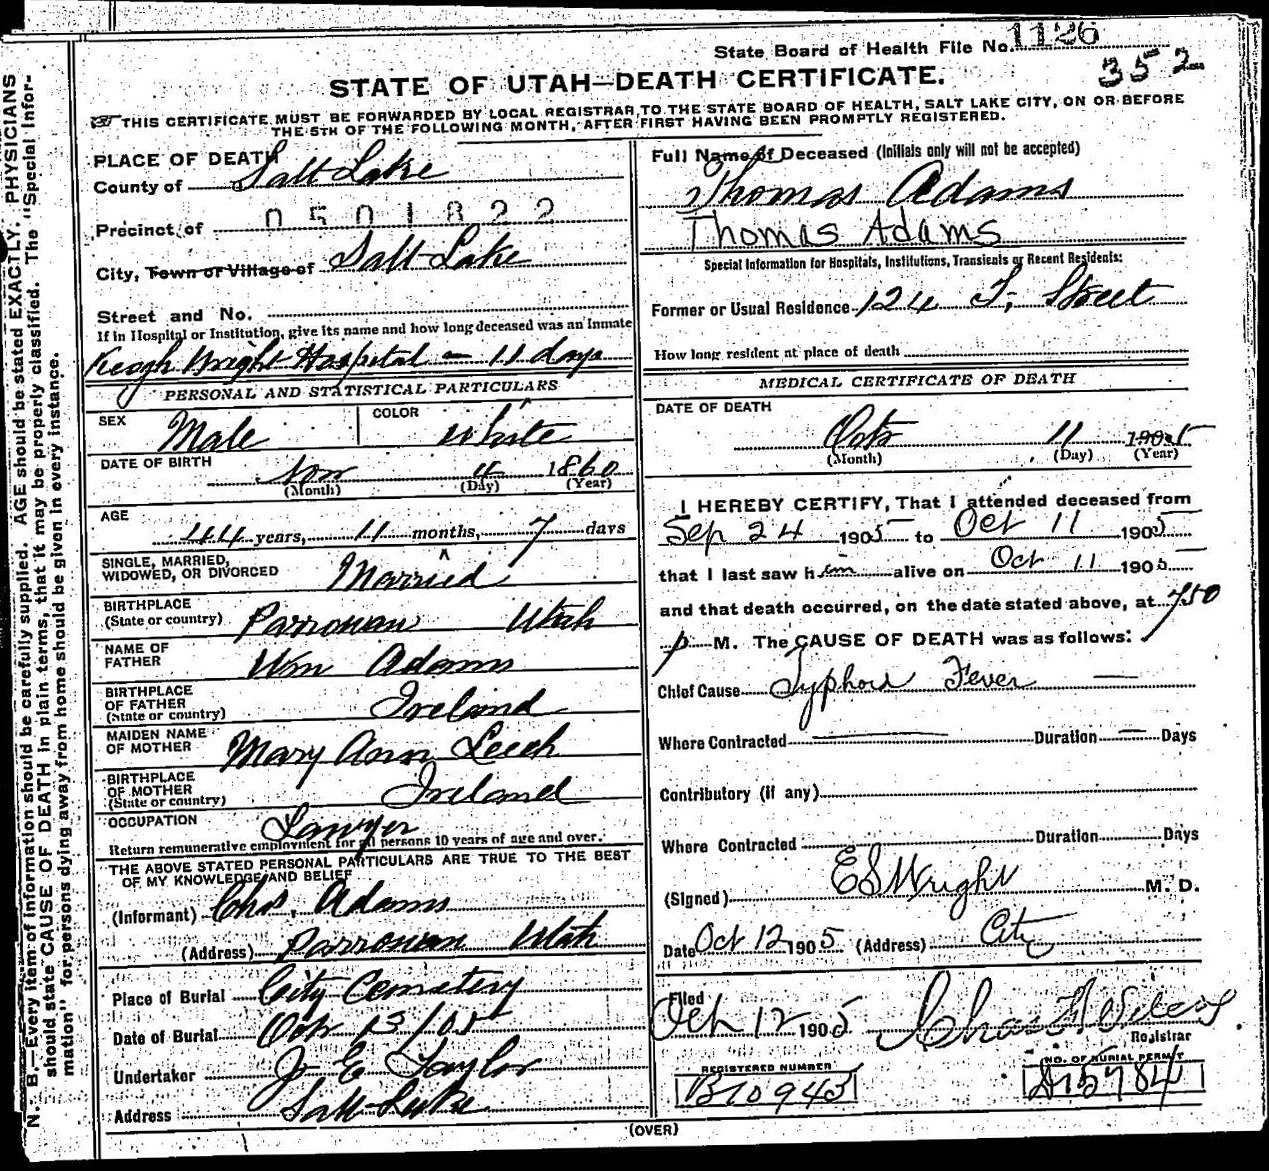 State Board of Health File No. 1126
352
STATE OF UTAH—DEATH CERTIFICATE.
THIS CERTIFICATE MUST BE FORWARDED BY LOCAL REGISTRAR TO THE STATE BOARD OF HEALTH, SALT LAKE CITY, ON OR BEFORE
THE 5TH OF THE FOLLOWING MONTH, AFTER FIRST HAVING BEEN PROMPTLY REGISTERED.
N. B.—Every item of information should be carefully supplied. AGE should be stated EXACTLY. PHYSICIANS
should state CAUSE OF DEATH in plain terms, that it may be properly classified. The "Special Infor-
mation" for persons dying away from home should be given in every instance.
PLACE OF DEATH
County of Salt Lake
Precinct of 0501822
City, Town or Village of Salt Lake
Street and No.
If in Hospital or Institution, give its name and how long deceased was an Inmate
Keogh Wright Hospital - 11 days
PERSONAL AND STATISTICAL PARTICULARS
SEX Male COLOR White
DATE OF BIRTH Nov 4 1860
(Month) (Day) (Year)
AGE 44 years, 11 months, 7 days
SINGLE, MARRIED,
WIDOWED, OR DIVORCED Married
BIRTHPLACE
(State or country) Parrowan Utah
NAME OF
FATHER Wm Adams
BIRTHPLACE
OF FATHER
(State or country) Ireland
MAIDEN NAME
OF MOTHER Mary Ann Leech
BIRTHPLACE
OF MOTHER
(State or country) Ireland
OCCUPATION Lawyer
Return remunerative employment for all persons 10 years of age and over.
THE ABOVE STATED PERSONAL PARTICULARS ARE TRUE TO THE BEST
OF MY KNOWLEDGE AND BELIEF
(Informant) Chas. Adams
(Address) Parrowan Utah
Place of Burial City Cemetery
Date of Burial Oct 13/05
Undertaker J E Taylor
Address Salt Lake
Full Name of Deceased (Initials only will not be accepted)
Thomas Adams
Thomas Adams
Special Information for Hospitals, Institutions, Transients or Recent Residents:
Former or Usual Residence 124 F. Street
How long resident at place of death
MEDICAL CERTIFICATE OF DEATH
DATE OF DEATH
Oct 11 1905
(Month) (Day) (Year)
I HEREBY CERTIFY, That I attended deceased from
Sep 24 1905 to Oct 11 1905
that I last saw him alive on Oct 11 1905
and that death occurred, on the date stated above, at 750
p M. The CAUSE OF DEATH was as follows:
Chief Cause Typhoid Fever —
Where Contracted — Duration — Days
Contributory (if any)
Where Contracted Duration Days
(Signed) E S Wright M. D.
Date Oct 12 1905 (Address) City
Filed
Oct 12 1905 Chas
Registrar
REGISTERED NUMBER NO. OF BURIAL PERMIT
B10943 A15784
(OVER)